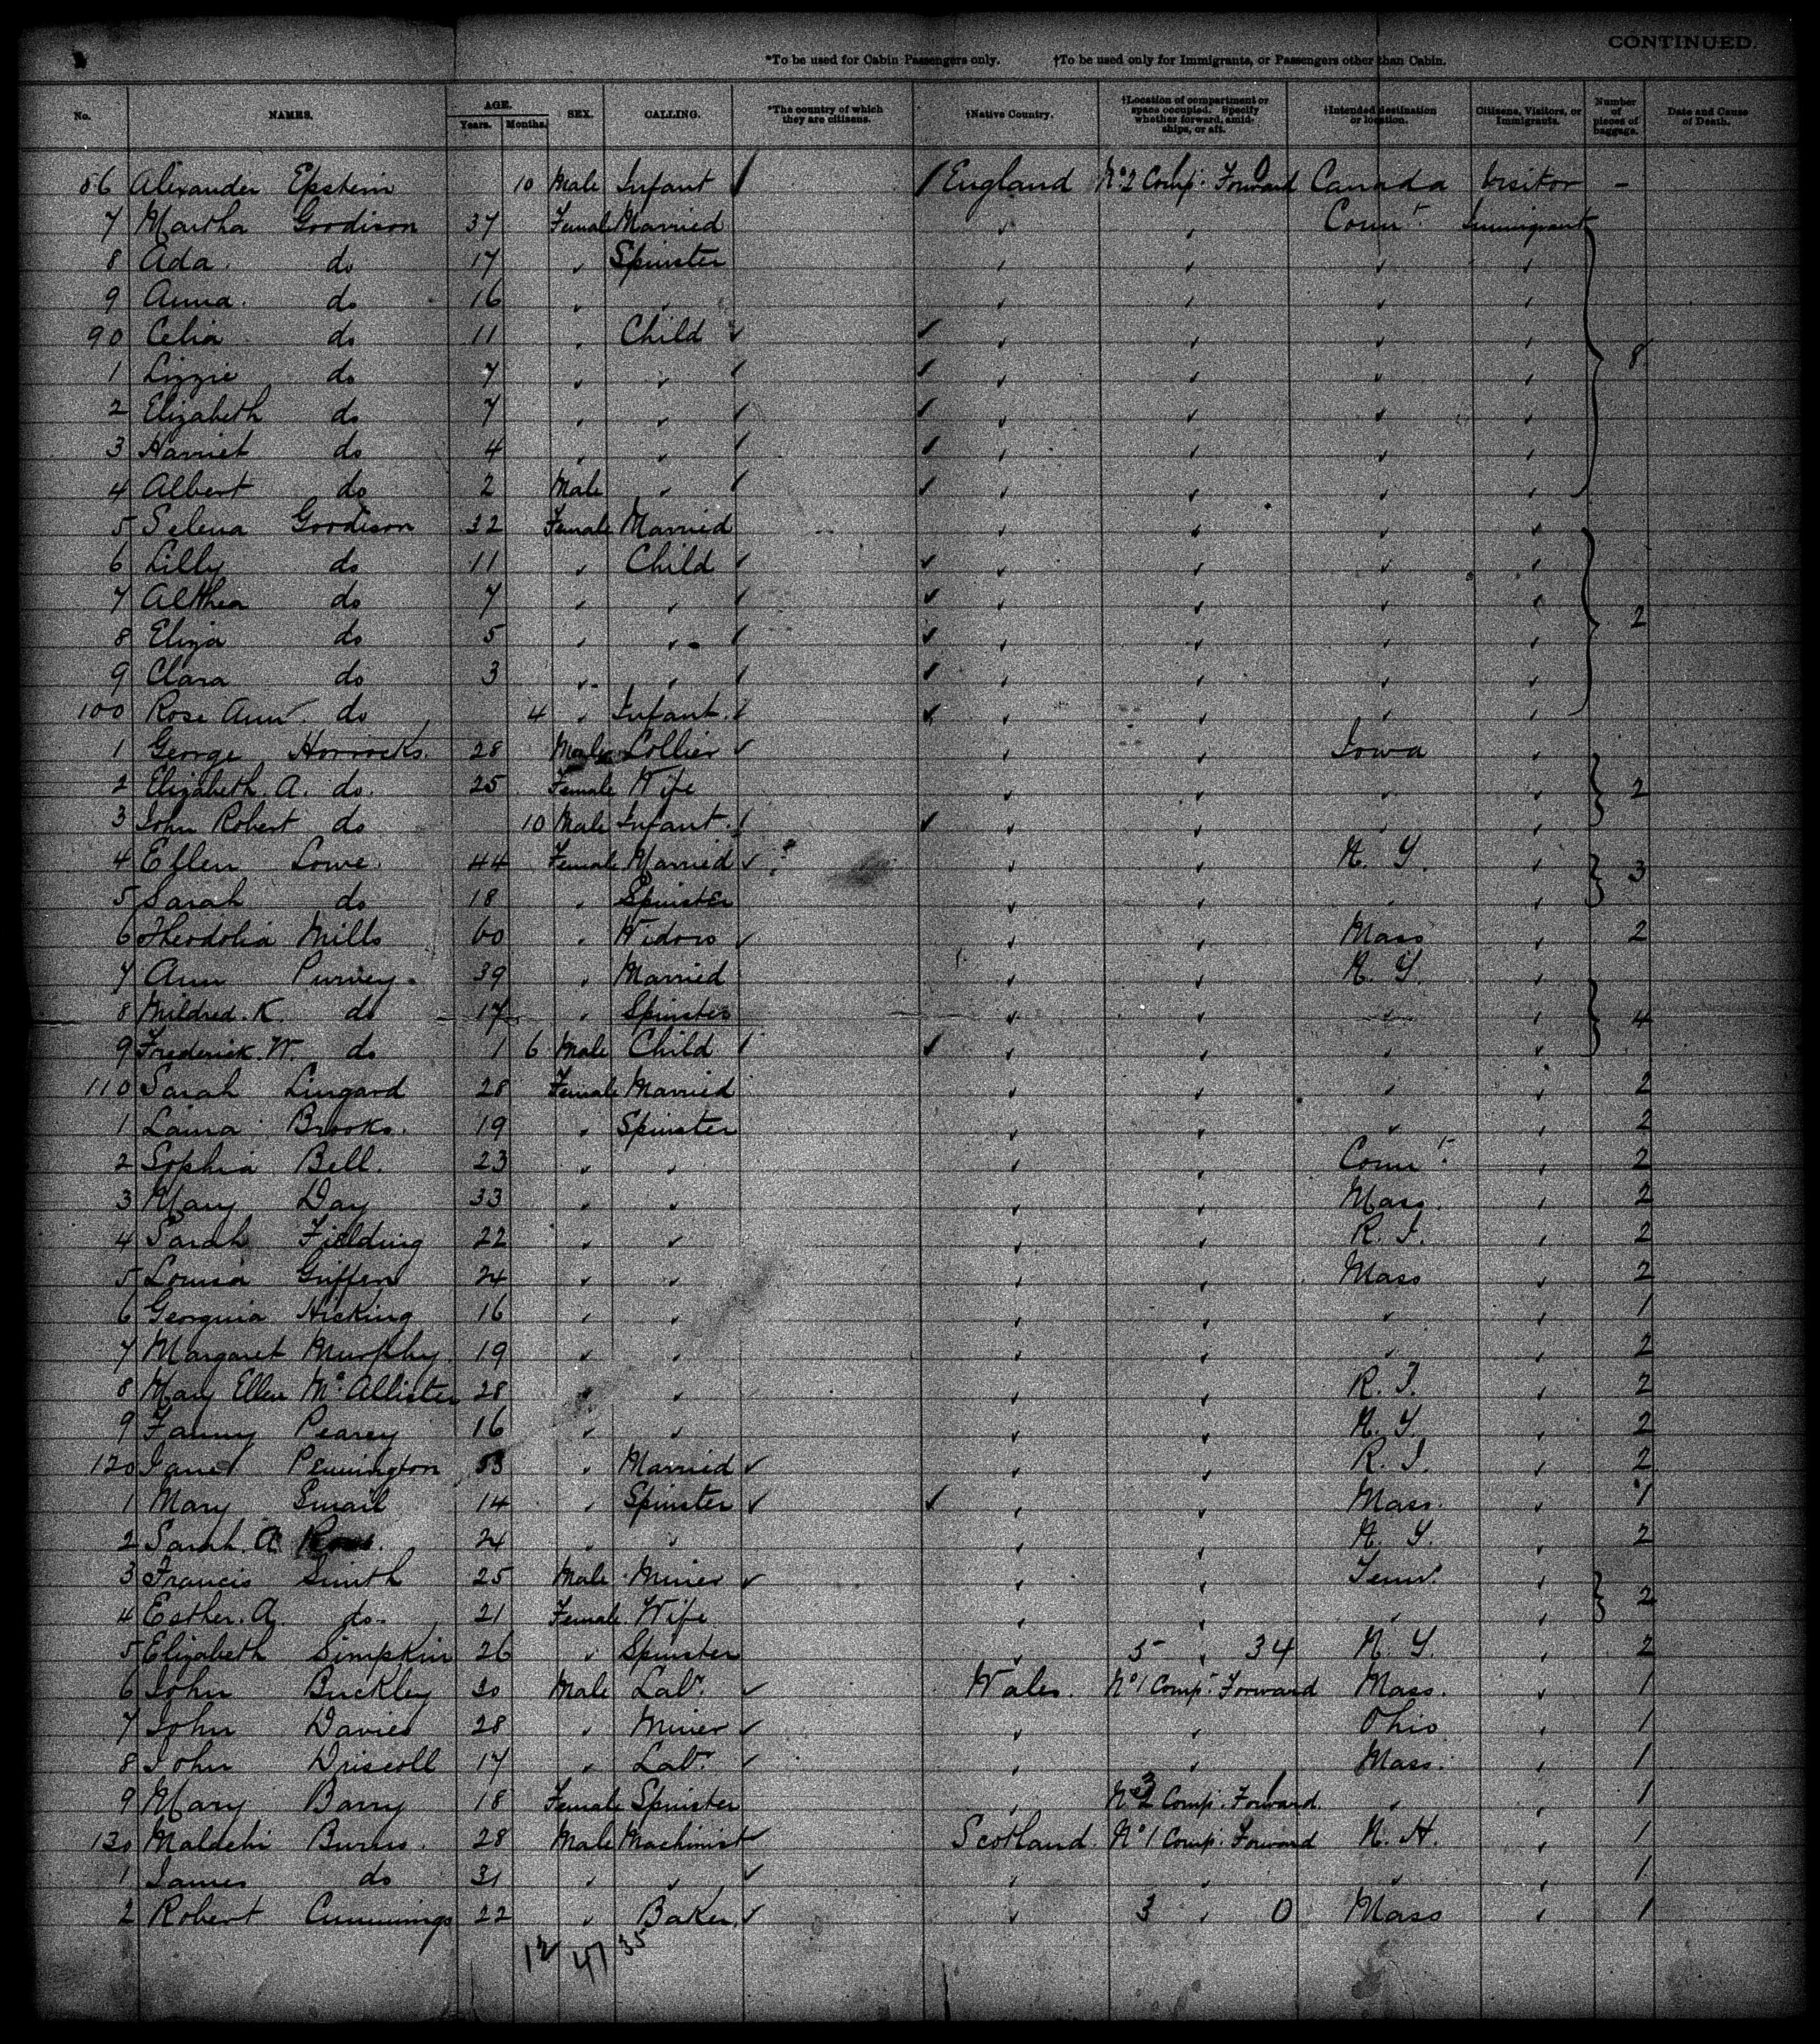 CONTINUED.
*To be used for Cabin Passengers only. †To be used only for Immigrants, or Passengers other than Cabin.
No. NAMES. AGE. Years. Months. SEX. CALLING. *The country of which they are citizens. †Native Country. †Location of compartment or space occupied. Specify whether forward, amidships, or aft. †Intended destination or location. Citizens, Visitors, or Immigrants. Number of pieces of baggage. Date and Cause of Death.
86 Alexander Epstein 10 Male Infant England No 2 Comp. Forward Canada Visitor -
7 Martha Goodison 37 Female Married Connt. Immigrant
8 Ada do 17 Spinster
9 Anna do 16
90 Celia do 11 Child
1 Lizzie do 7
2 Elizabeth do 7
3 Harriet do 4
4 Albert do 2 Male
8
5 Selena Goodison 32 Female Married
6 Lilly do 11 Child
7 Althea do 7
8 Eliza do 5
9 Clara do 3
100 Rose Ann do 4 Infant
2
1 George Horrocks 28 Male Collier Iowa
2 Elizabeth A. do. 25 Female Wife 2
3 John Robert do 10 Male Infant
4 Ellen Lowe 44 Female Married N. Y. 3
5 Sarah do 18 Spinster
6 Theodolia Mills 60 Widow Mass 2
7 Ann Purvey 39 Married N. Y.
8 Mildred K. do 17 Spinster 4
9 Frederick W. do 1 6 Male Child
110 Sarah Lingard 28 Female Married 2
1 Laura Brooks 19 Spinster 2
2 Sophia Bell 23 Connt. 2
3 Mary Day 33 Mass. 2
4 Sarah Fielding 22 R. I. 2
5 Louisa Griffen 24 Mass 2
6 Georgina Hicking 16 1
7 Margaret Murphy 19 2
8 Mary Ellen McAllister 28 R. I. 2
9 Fanny Pearey 16 N. Y. 2
120 Jane Pennington 53 Married R. I. 2
1 Mary Smail 14 Spinster Mass. 1
2 Sarah A 24 N. Y. 2
3 Francis Smith 25 Male Miner Tenn.
4 Esther A. do. 21 Female Wife 2
5 Elizabeth Simpkin 26 Spinster 5 34 N. Y. 2
6 John Buckley 30 Male Labr. Wales. No 1 Comp. Forward Mass. 1
7 John Davies 28 Miner Ohio 1
8 John Driscoll 17 Labr. Mass. 1
9 Mary Barry 18 Female Spinster Comp. Forward 1
130 Malachi Burns 28 Male Machinist Scotland No 1 Comp. Forward N. H. 1
1 James do 31 1
2 Robert Cummings 22 Baker 3 0 Mass 1
12 47 35